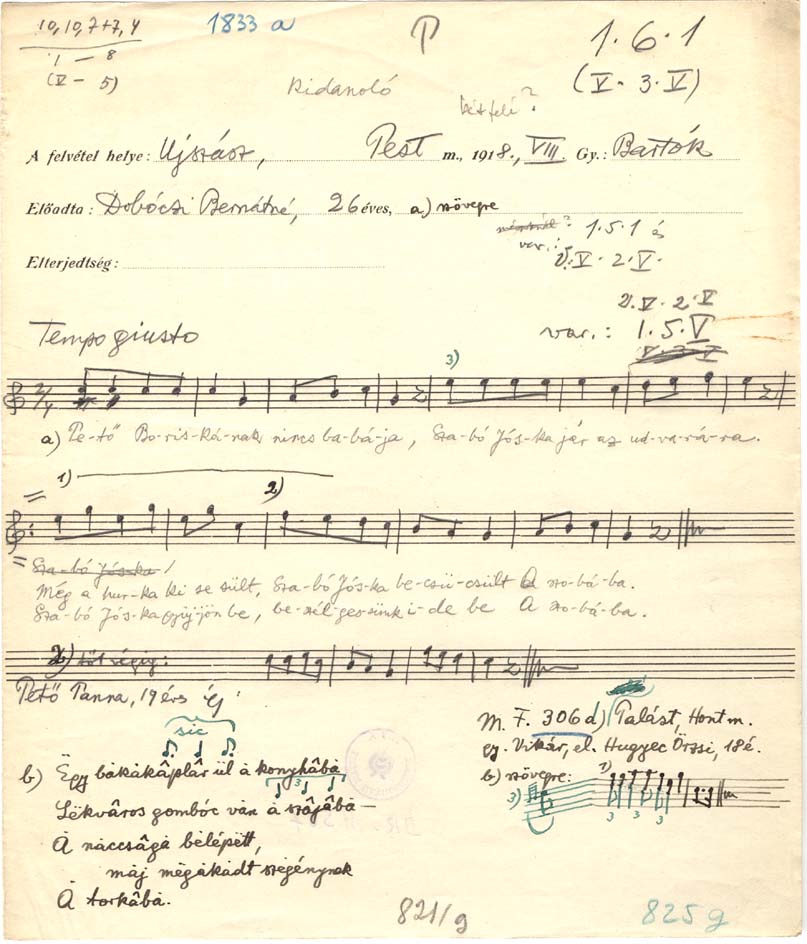 10, 10, 7+7, 4
1 — 8
(V — 5)
1833 a
P
1 · 6 · 1
(V · 3 · V)
kidanoló
?
A felvétel helye: Ujszász, Pest m., 1918., VIII. Gy.: Bartók
Előadta: Dobóczi Bernátné, 26 éves, a) szövegre
? 1·5·1 és
var.: V·2·V·
Elterjedtség:
V·2·V
Tempo giusto
var.: 1·5·V
V·3·V
2/4
3)
a) Pe-tő Bo-ris-ká-nak nincs ba-bá-ja, Sza-bó Jós-ka jár az ud-va-rá-ra.
1)
2)
Sza-bó Jós-ka
Még a hur-ka ki se sült, Sza-bó Jós-ka be-csü-csült A szo-bá-ba.
Sza-bó Jós-ka gyüj-jön be, be-szél-ges-sünk i-de be A szo-bá-ba.
2) től végig:
Pető Panna, 19 éves így:
sic
b) Ëgy bàkàkàplâr ül à konyhâbà
3
Lëkvâros gombóc vàn à szâjâbà —
À nàccsâgà bélépëtt,
màj mëgàkàdt szëgénynek
À torkâbà.
M. F. 306 d) Palást, Hont m.
gy. Vikár, el. Hugyec Örzsi, 18 é.
b) szövegre:
1)
3)
3 3 3
821/g
825 g